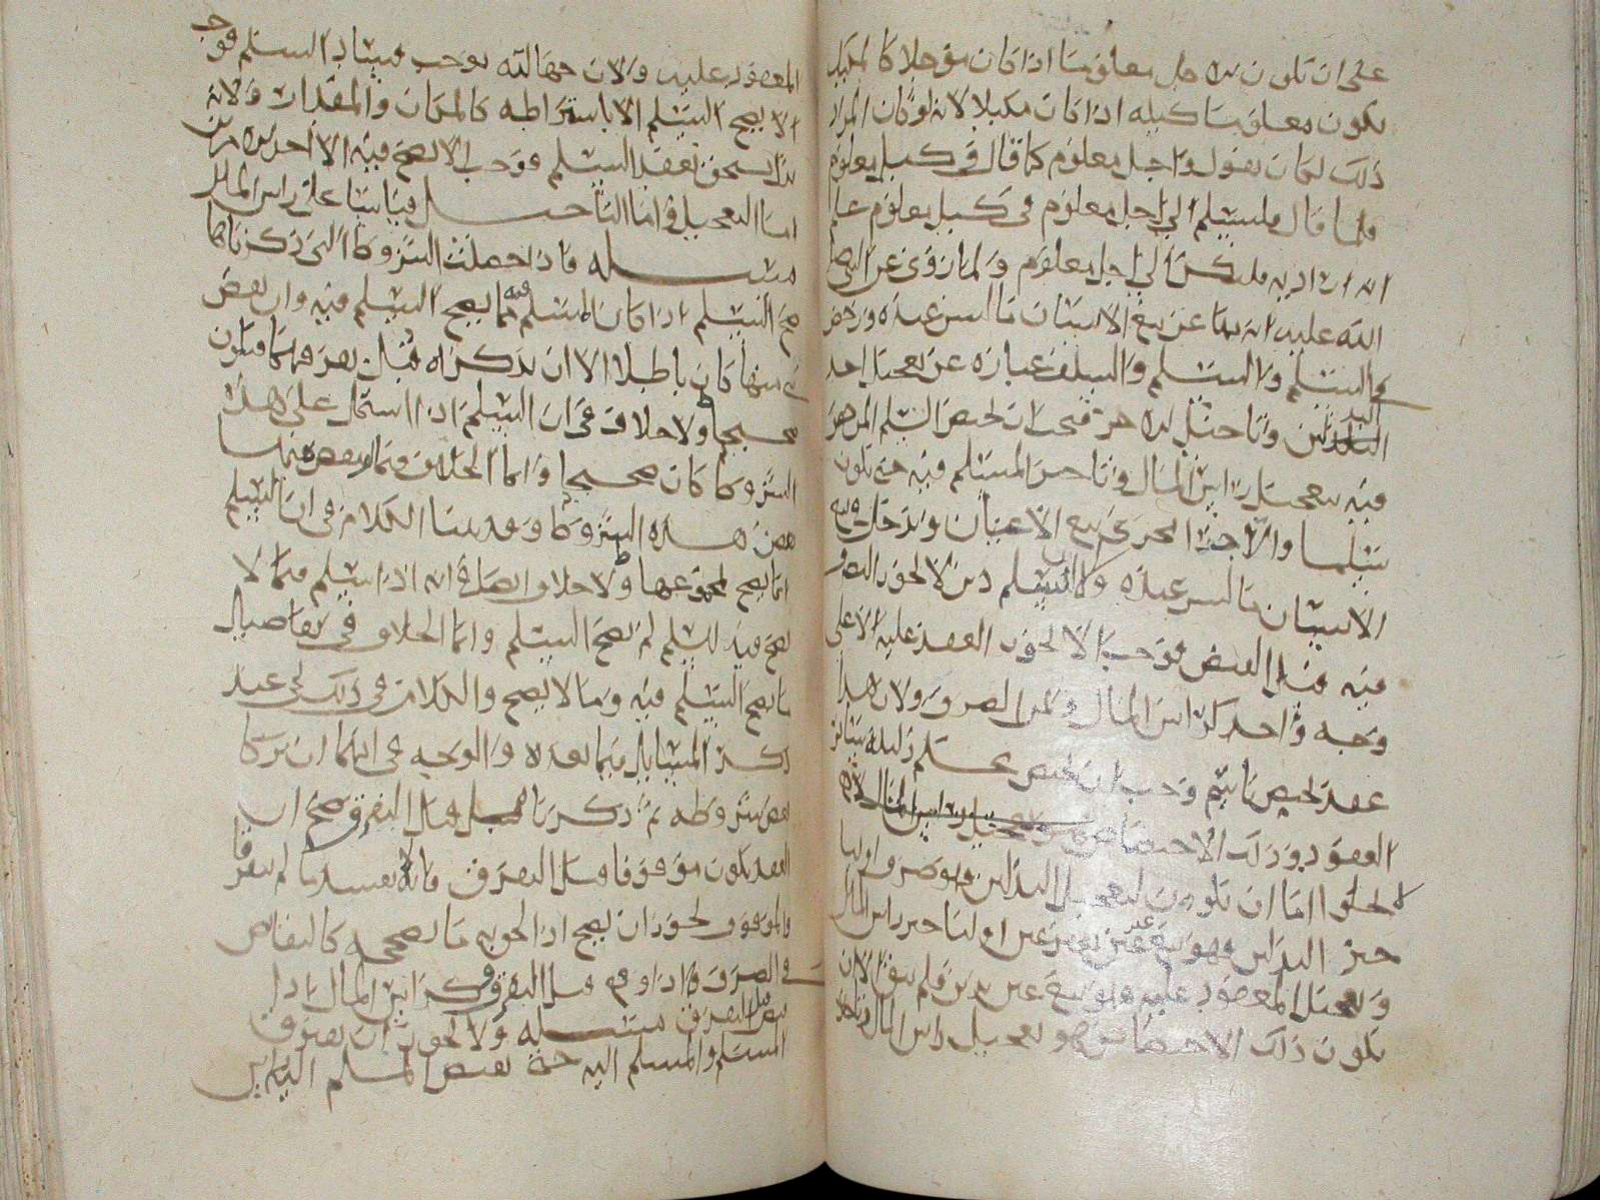 على ان تكون له اجل معلوما اذا كان مؤجلا كالمكيل
يكون معلوما كيله اذا كان مكيلا لانه لو كان المراد
ذلك لكان يقول واجل معلوم كما قال في كيل معلوم
فلما قال فليسلم الى اجل معلوم في كيل معلوم علم
انه اراد به فليكن الى اجل معلوم ولما روي عن النبي صلى
الله عليه انه نهى عن بيع الانسان ما ليس عنده ورخص
في السلم والسلم والسلف عبارة عن تعجيل احد
البدلين وتاخير الاخر فيجب ان يختص السلم
فيه بتعجيل راس المال وتاخير المسلم فيه حتى يكون
سلما والا جرى مجرى بيع الاعيان ودخل في بيع
الانسان ما ليس عنده ولان السلم دين لا يجوز التصرف
فيه قبل القبض فوجب الا يجوز العقد عليه الا على
وجه واحد كراس المال وثمن الصرف ولان هذا
عقد يختص باسم وجب ان يختص بحكم دليله سائر
العقود وذلك الاختصاص
لا يخلوا اما ان يكون لتعجيل البدلين وهو صرف او لتا
خير البدلين فهو بيع دين بدين او لتاخير راس المال
وتعجيل المعقود عليه وهو بيع عين بدين فلم يبق الا ان
يكون ذلك الاختصاص هو تعجيل راس المال وتاخير
المعقود عليه ولان جهالته توجب فساد السلم فوجب
الا يصح السلم الا باشتراطه كالمكان والمقدار ولانه
بدل يستحق بعقد السلم فوجب الا يصح فيه الا احد الامرين
اما التعجيل واما التاجيل قياسا على راس المال
مسله فاذا حصلت الشروط التي ذكرناها
صح السلم اذا كان المسلم فيه مما يصح السلم فيه وان نقص
شي منها كان باطلا الا ان يذكراه قبل تفرقهما فيكون
صحيحا ولا خلاف في ان السلم اذا اشتمل على هذه
الشروط كان صحيحا وانما الخلاف فيما نقص منها
بعض هذه الشروط وقد بينا الكلام في ان السلم
انما يصح بمجموعها ولا خلاف ايضا في انه اذا اسلم فيما لا
يصح فيه السلم لم يصح السلم وانما الخلاف في تفاصيل
ما يصح السلم فيه وما لا يصح والكلام في ذلك يجي عند
ذكر المسايل فيما بعده والوجه في انهما ان تركا
بعض شروطه ثم ذكرناه قبل التفرق صح ان
العقد يكون موقوفا قبل التفرق فانه يفسد ما لم يتفرقا
والموقوف يجوز ان يصح اذا لحق به ما يصححه كالتقابض
في الصرف اذا وقع قبل التفرق وكراس المال اذا
قبض قبل التفرق مسله ولا يجوز ان يفترق
المسلم والمسلم اليه حتى يقبض المسلم اليه